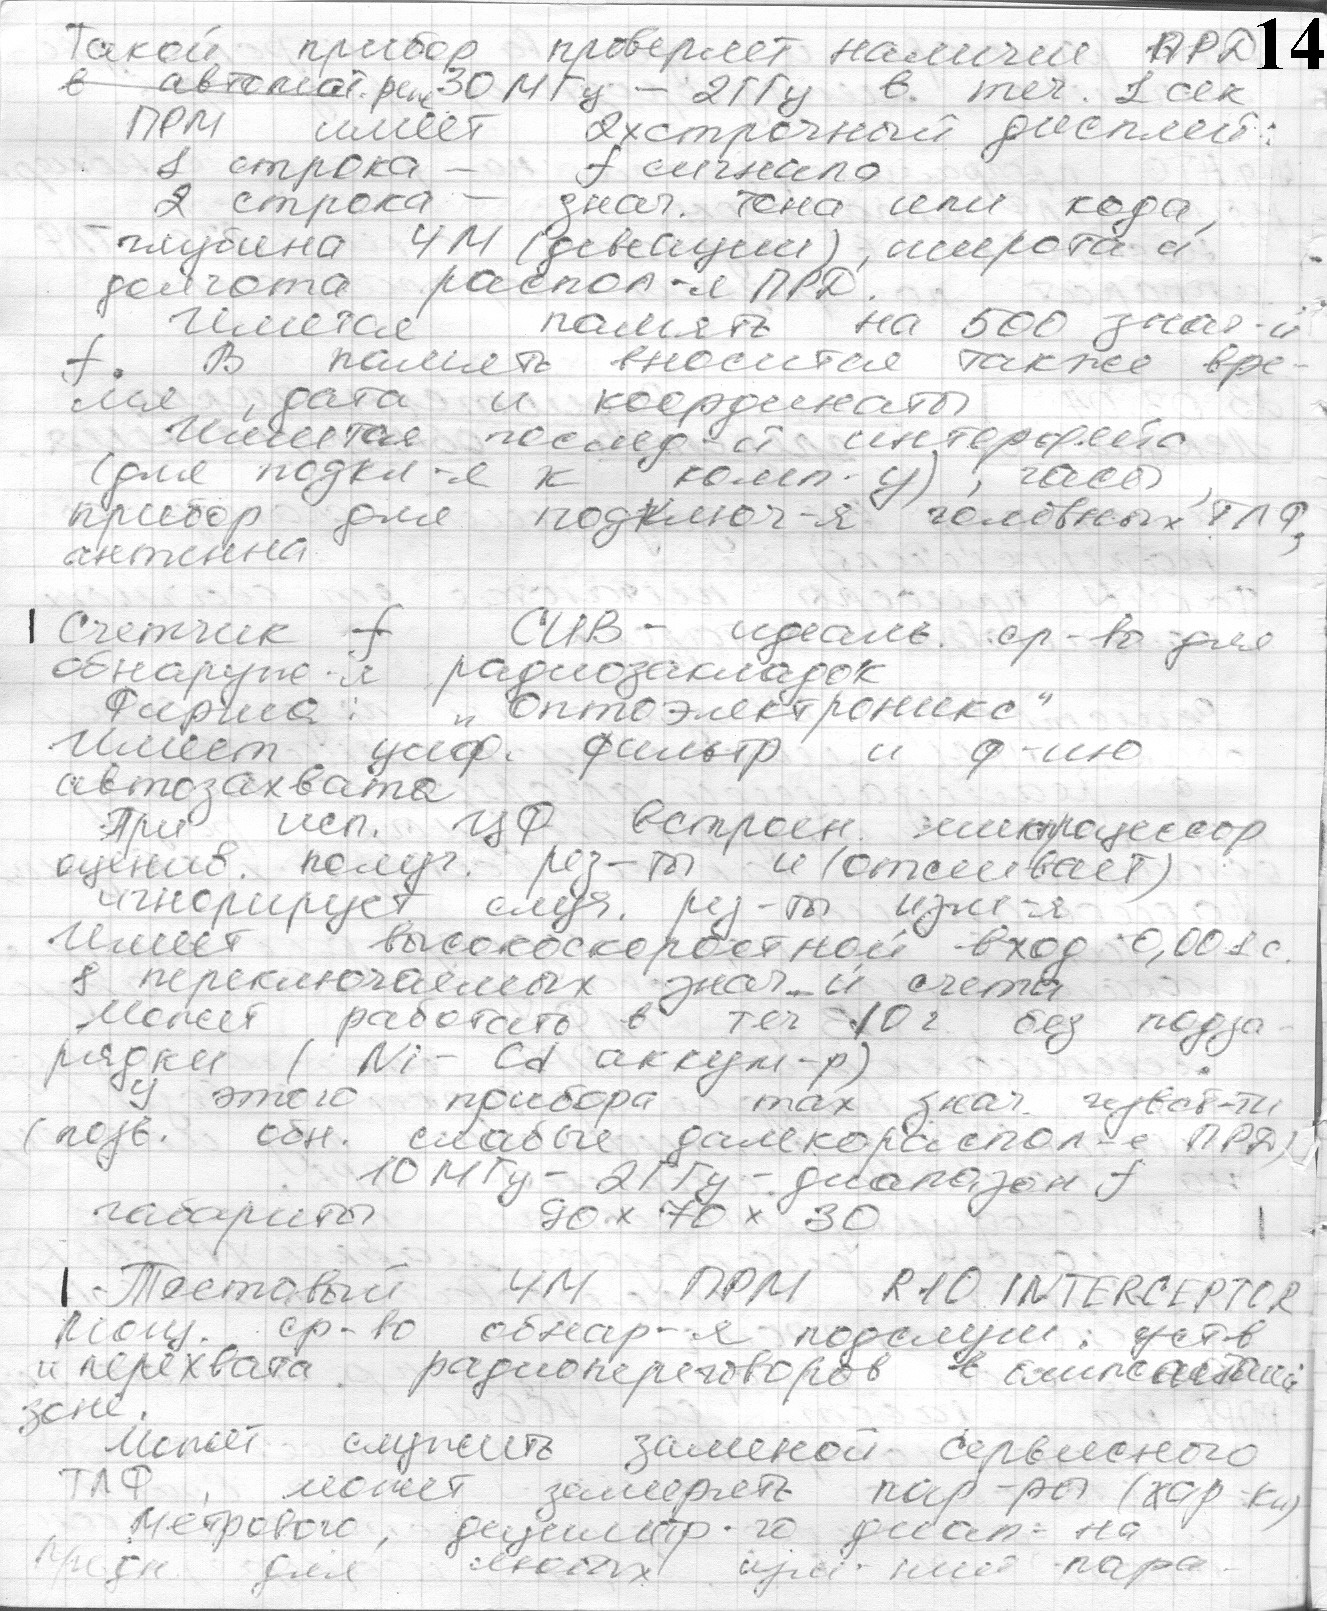 14
Такой прибор проверяет наличие ПРД
в автомат. реж 30 МГц – 2ГГц в теч. 1 сек
ПРМ имеет 2хстрочный дисплей:
1 строка – f сигнала
2 строка – знач. тона или кода,
глубина ЧМ (девиации), широта и
долгота распол-я ПРД.
Имеется память на 500 знач-й
f. В память вносится также вре-
мя, дата и координаты
Имеется послед-й интерфейс
(для подкл-я к комп-у), часы,
прибор для подключ-я головных ТЛФ,
антенна
Счетчик f СЦВ – идеаль. ср-во для
обнаруже-я радиозакладок
Фирма: „Оптоэлектроникс“
Имеет циф. фильтр и ф-ию
автозахвата
При исп. ЦФ встроен. микпроцессор
оценив. получ. рез-ты и (отсеивает)
игнорирует случ. рез-ты изм-я
Имеет высокоскоростной вход 0,001 с.
8 переключаемых знач-й счета
Может работать в теч 10 ч без подза-
рядки (Ni – Cd аккум-р)
У этого прибора max знач. чувст-ти
(позв. обн. слабые далекораспол-е ПРД)
10 МГц – 2ГГц – диапазон f
габариты 90 × 70 × 30
Тестовый ЧМ ПРМ R10 INTERCEPTOR
Мощ. ср-во обнар-я подслуш. уст-в
и перехвата радиопереговоров в ближайшей
зоне.
Может служить заменой сервисного
ТЛФ, может замерять пар-ры (хар-ки)
метрового, дециметр-го диап-на
предн для любых изм-ний пара-